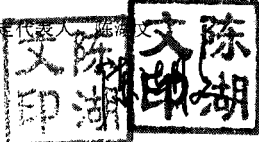 定代表人 陈湖文
陈湖文印
陈湖文印